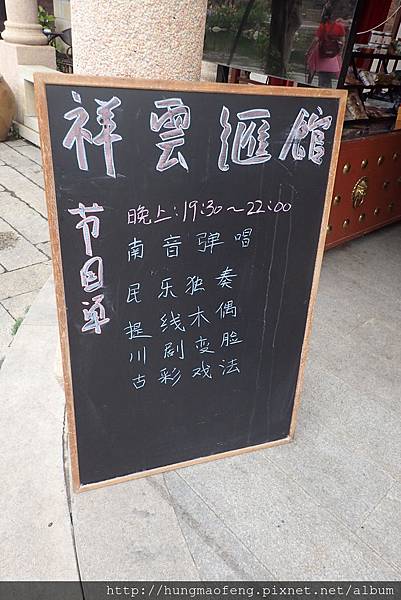 祥雲匯馆
节目单
晚上:19:30~22:00
南音弹唱
民乐独奏
提线木偶
川剧变脸
古彩戏法
http://hungmaofeng.pixnet.net/album